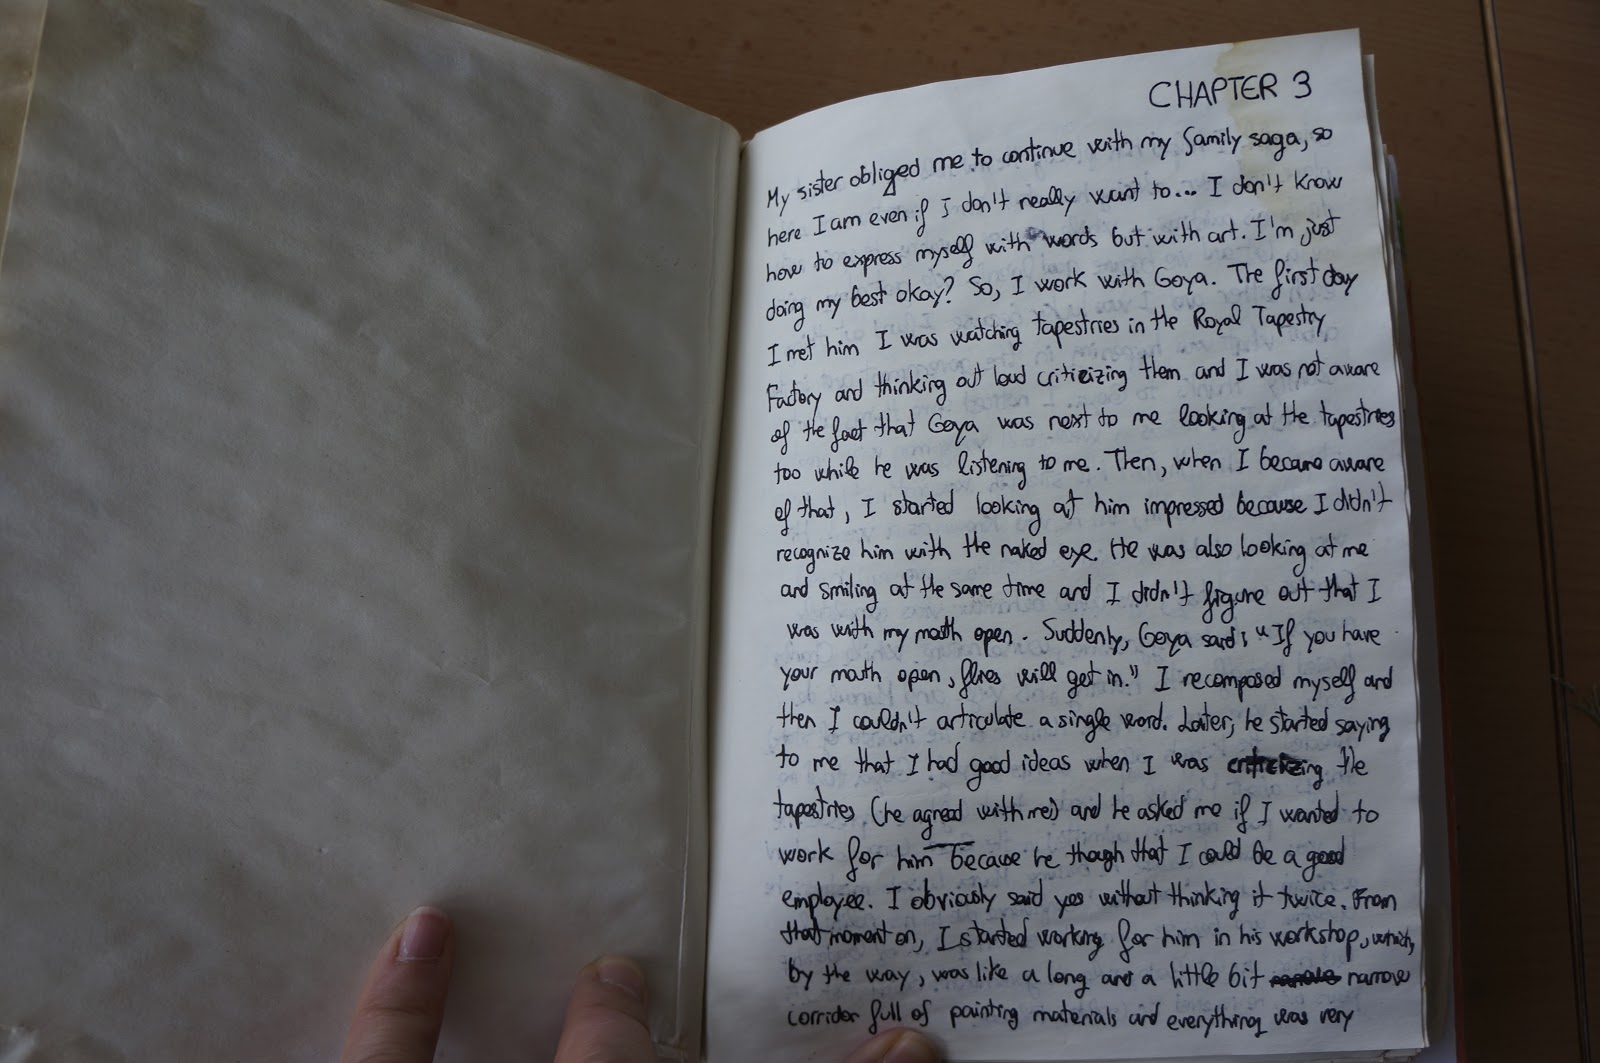 CHAPTER 3
My sister obliged me to continue with my family saga, so
here I am even if I don't really want to... I don't know
how to express myself with words but with art. I'm just
doing my best okay? So, I work with Goya. The first day
I met him I was watching tapestries in the Royal Tapestry
Factory and thinking out loud criticizing them and I was not aware
of the fact that Goya was next to me looking at the tapestries
too while he was listening to me. Then, when I became aware
of that, I started looking at him impressed because I didn't
recognize him with the naked eye. He was also looking at me
and smiling at the same time and I didn't figure out that I
was with my mouth open. Suddenly, Goya said: "If you have
your mouth open, flies will get in." I recomposed myself and
then I couldn't articulate a single word. Later, he started saying
to me that I had good ideas when I was criticizing the
tapestries (he agreed with me) and he asked me if I wanted to
work for him because he though that I could be a good
employee. I obviously said yes without thinking it twice. From
that moment on, I started working for him in his workshop, which,
by the way, was like a long and a little bit narrow
corridor full of painting materials and everything was very